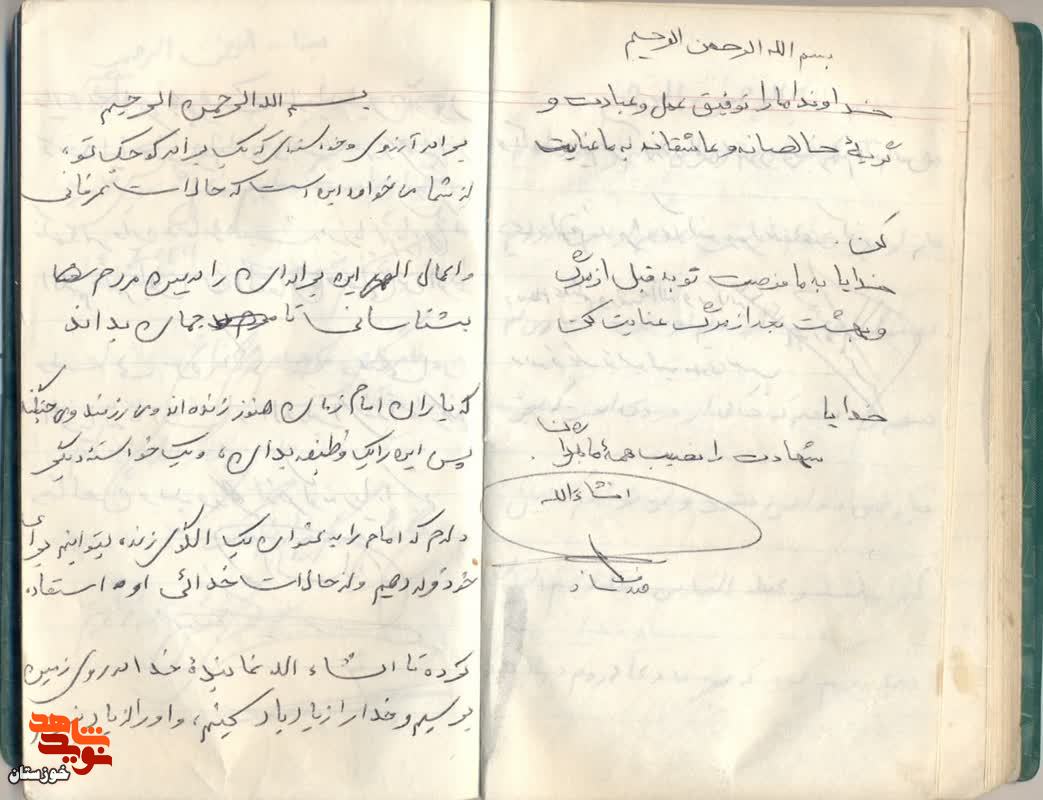 بسم الله الرحمن الرحیم
خداوندا ما را توفیق عمل و عبادت و
خالصانه و عاشقانه به ما عنایت
کن.
خدایا به ما فرصت توبه قبل از مرگ
و بهشت بعد از مرگ عنایت کن
خدایا
شهادت را نصیب همهٔ ما بفرما.
انشاءالله
بسم الله الرحمن الرحیم
برادر آرزوی و خواسته‌ای که یک برادر کوچک تو،
از شما می‌خواهد این است که حالات عرفانی
و اعمال الهی این برادران را در بین مردم
بشناسانی تا جهان بداند
که یاران امام زمان هنوز زنده‌اند و می‌رزمند و می‌جنگند
پس این را یک وظیفه بدان، و یک خواسته دیگری
دارم که امام را به عنوان یک الگوی زنده، بتوانیم برای
خود قرار دهیم و از حالات خدائی او استفاده
کرده تا انشاء الله نمایندهٔ خدا در روی زمین
برسیم و خدا را زیاد یاد کنیم، و او را از یاد
نوید شاهد
خوزستان